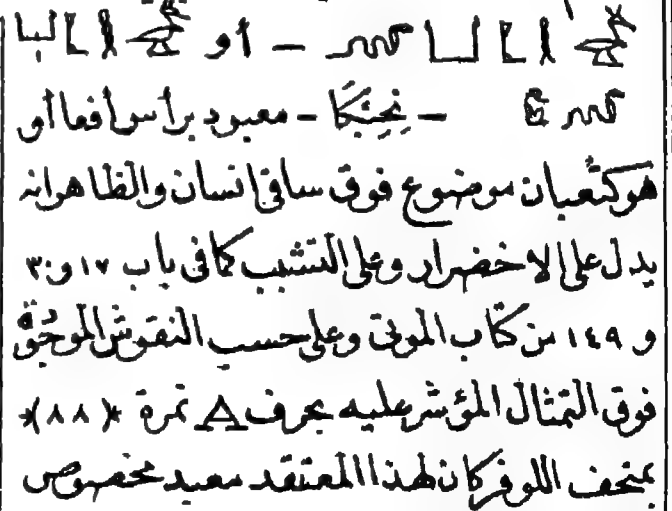 — أو
— نِحِبْكَا — معبود برأس أفعا أو
هو كثعبان موضوع فوق ساقى انسان والظاهر انه
يدل على الاخضرار وعلى التشبيب كما فى باب ١٧ و ٣٠
و ١٤٩ من كتاب الموتى وعلى حسب النقوش الموجودة
فوق التمثال المؤشر عليه بحرف A نمرة *(٨٨)*
بمتحف اللوفر كان لهذا المعتقد معبد مخصوص